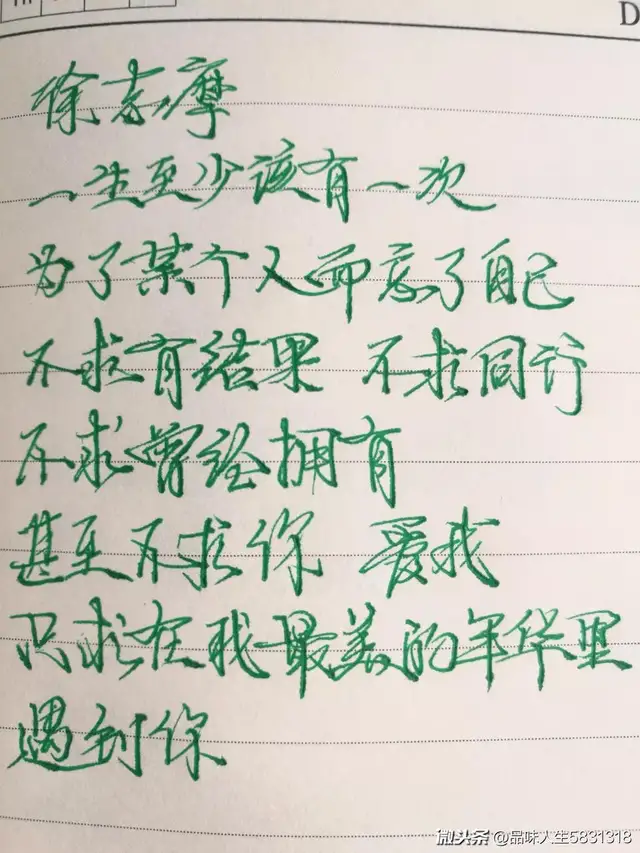 D
徐志摩
一生至少该有一次
为了某个人而忘了自己
不求有结果 不求同行
不求曾经拥有
甚至不求你 爱我
只求在我最美的年华里
遇到你
微头条 @品味人生5831318